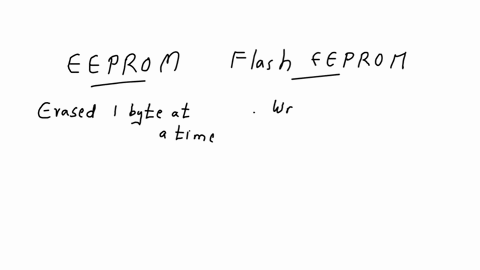 EEPROM
Flash EEPROM
Erased 1 byte at
a time
. Wr